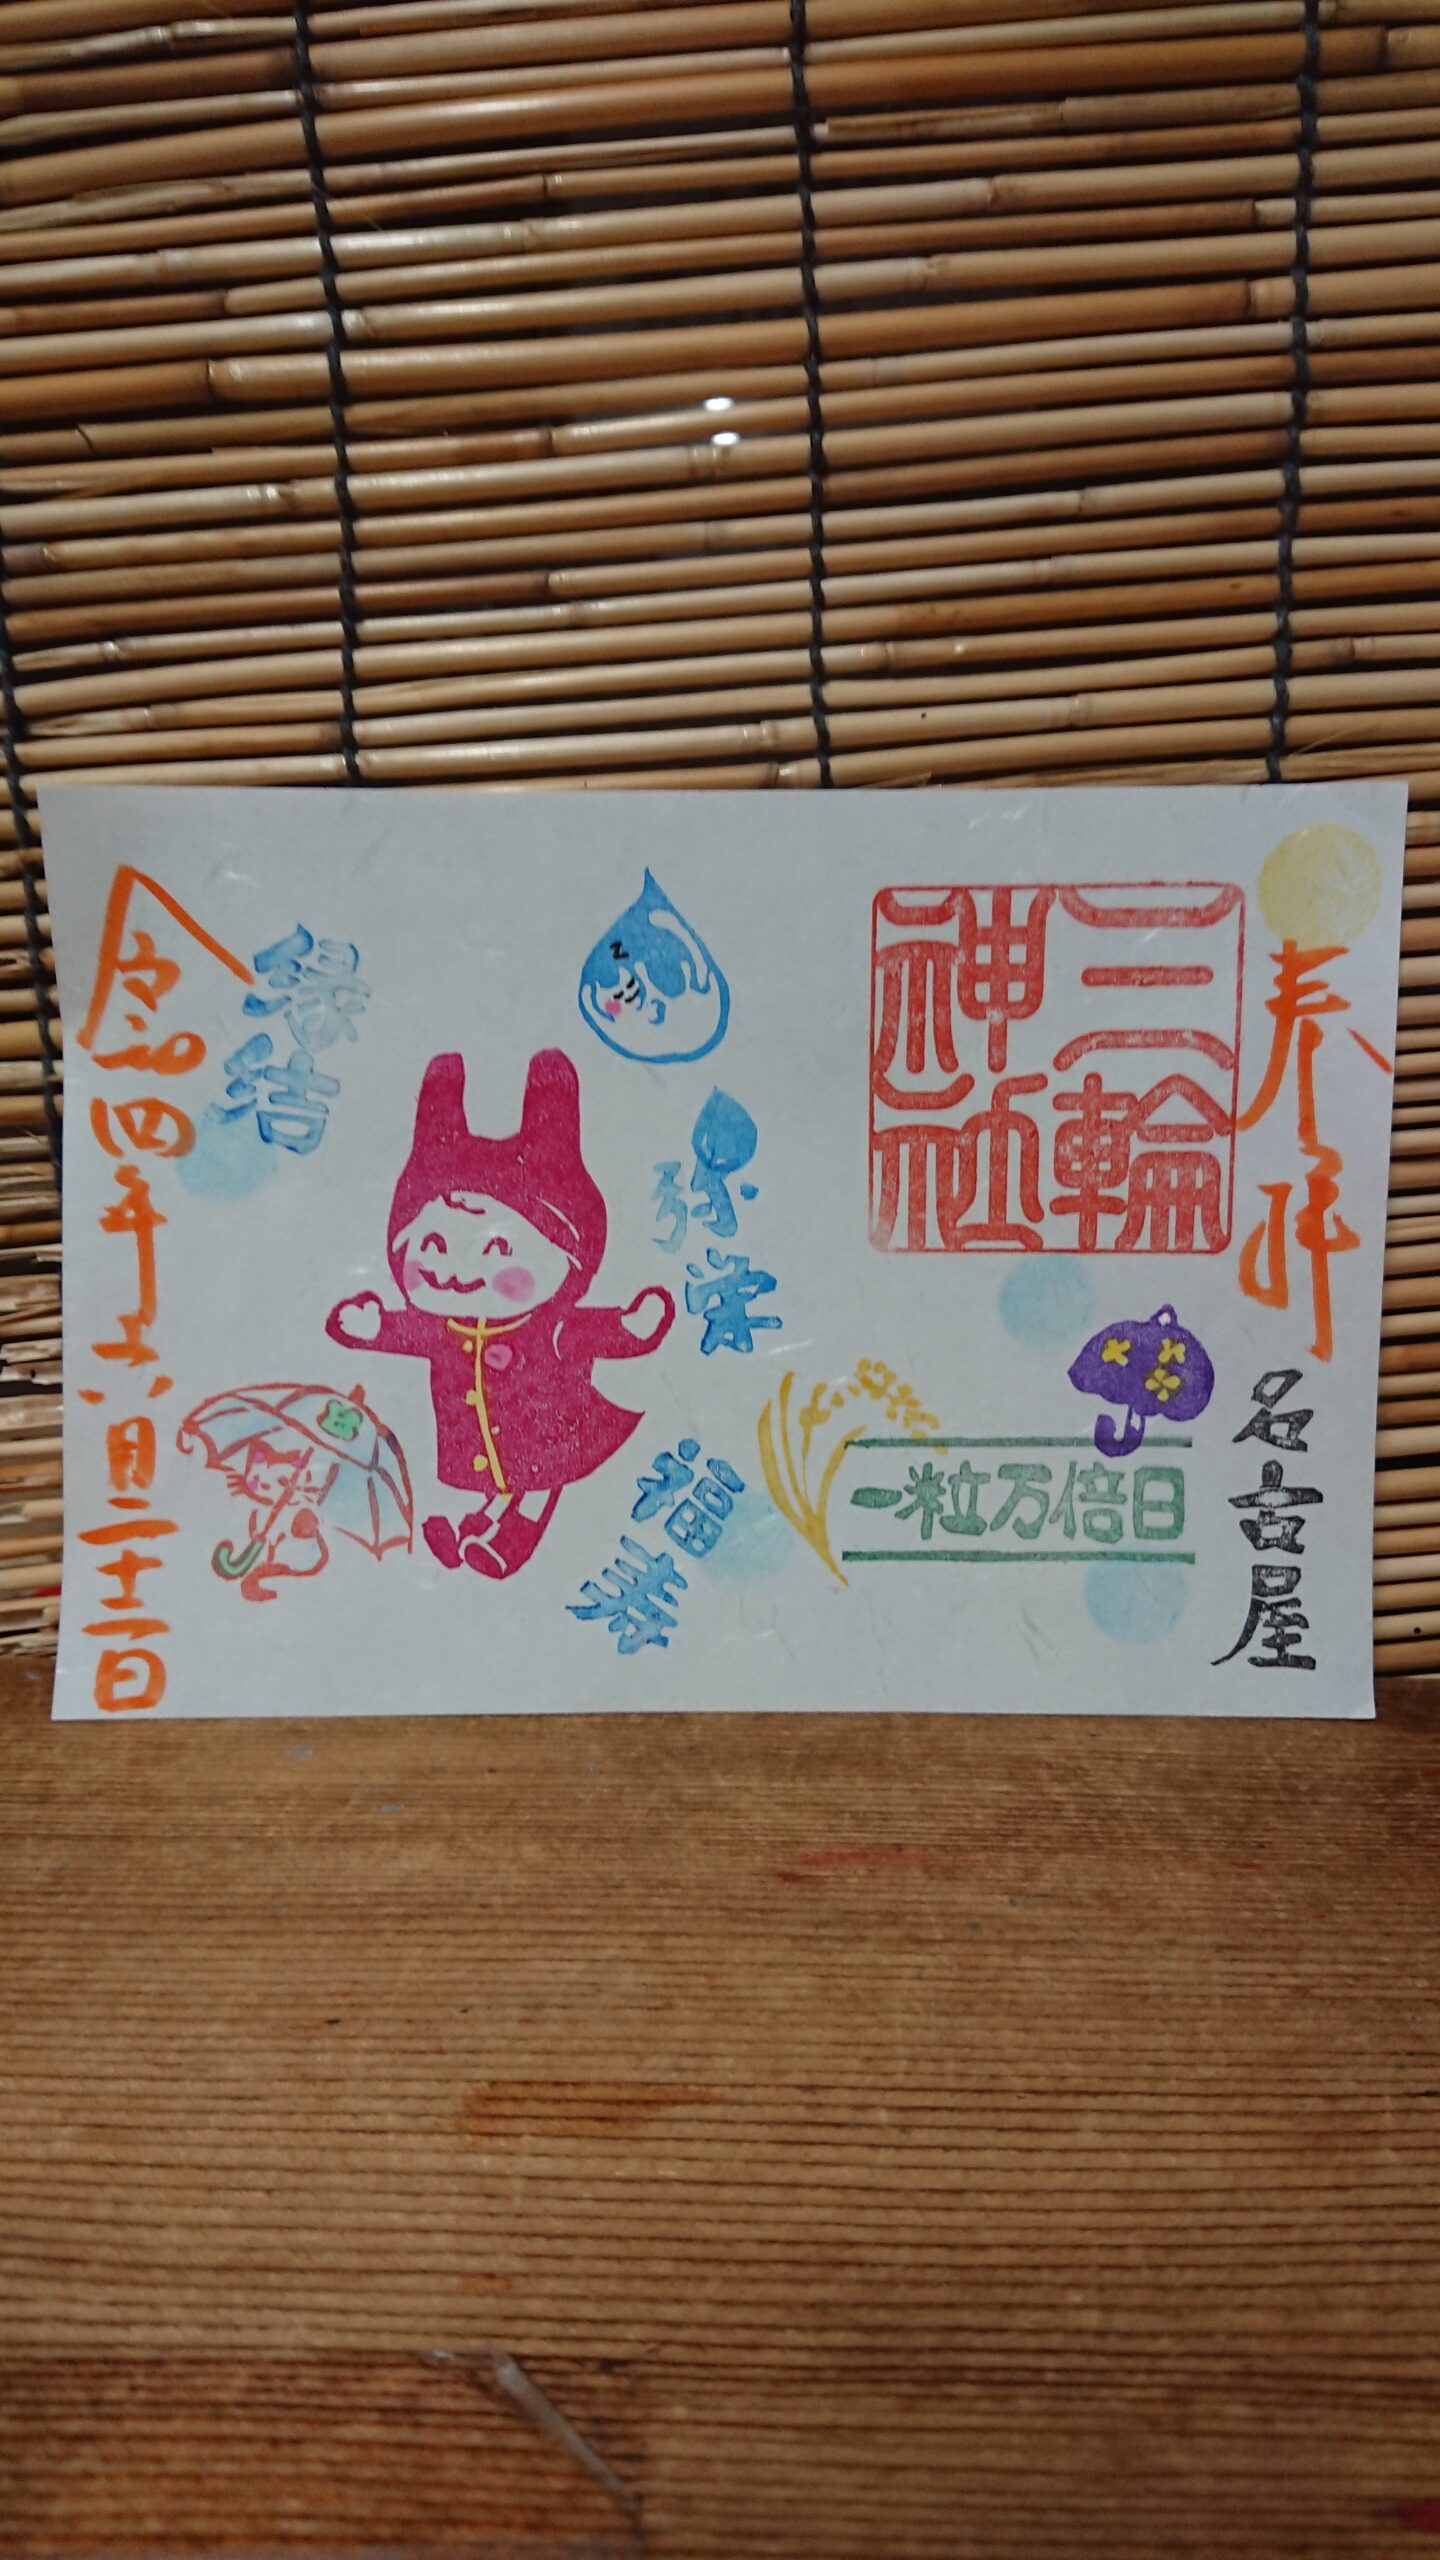 奉拝
名古屋
三輪
神社
一粒万倍日
z
弥栄
福寿
縁結
令和四年六月二十二日